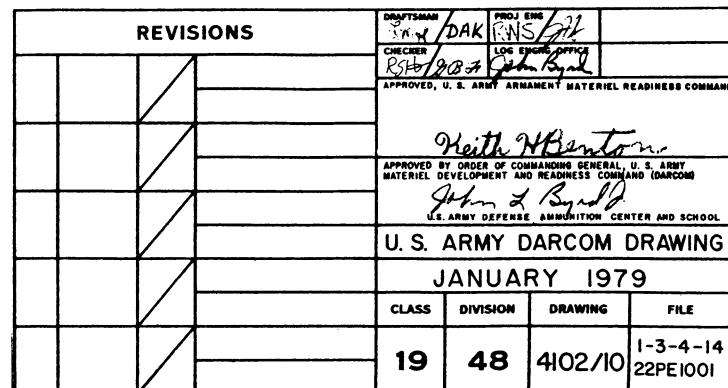 REVISIONS
DRAFTSMAN PROJ ENG
/DAK RWS/
CHECKER LOG ENGRG OFFICE
John Byrd
APPROVED, U. S. ARMY ARMAMENT MATERIEL READINESS COMMAN
Keith H Benton
APPROVED BY ORDER OF COMMANDING GENERAL, U. S. ARMY
MATERIEL DEVELOPMENT AND READINESS COMMAND (DARCOM)
John L Byrd Jr
U.S. ARMY DEFENSE AMMUNITION CENTER AND SCHOOL
U. S. ARMY DARCOM DRAWING
JANUARY 1979
CLASS DIVISION DRAWING FILE
19 48 4102/10 1-3-4-14
22PE1001